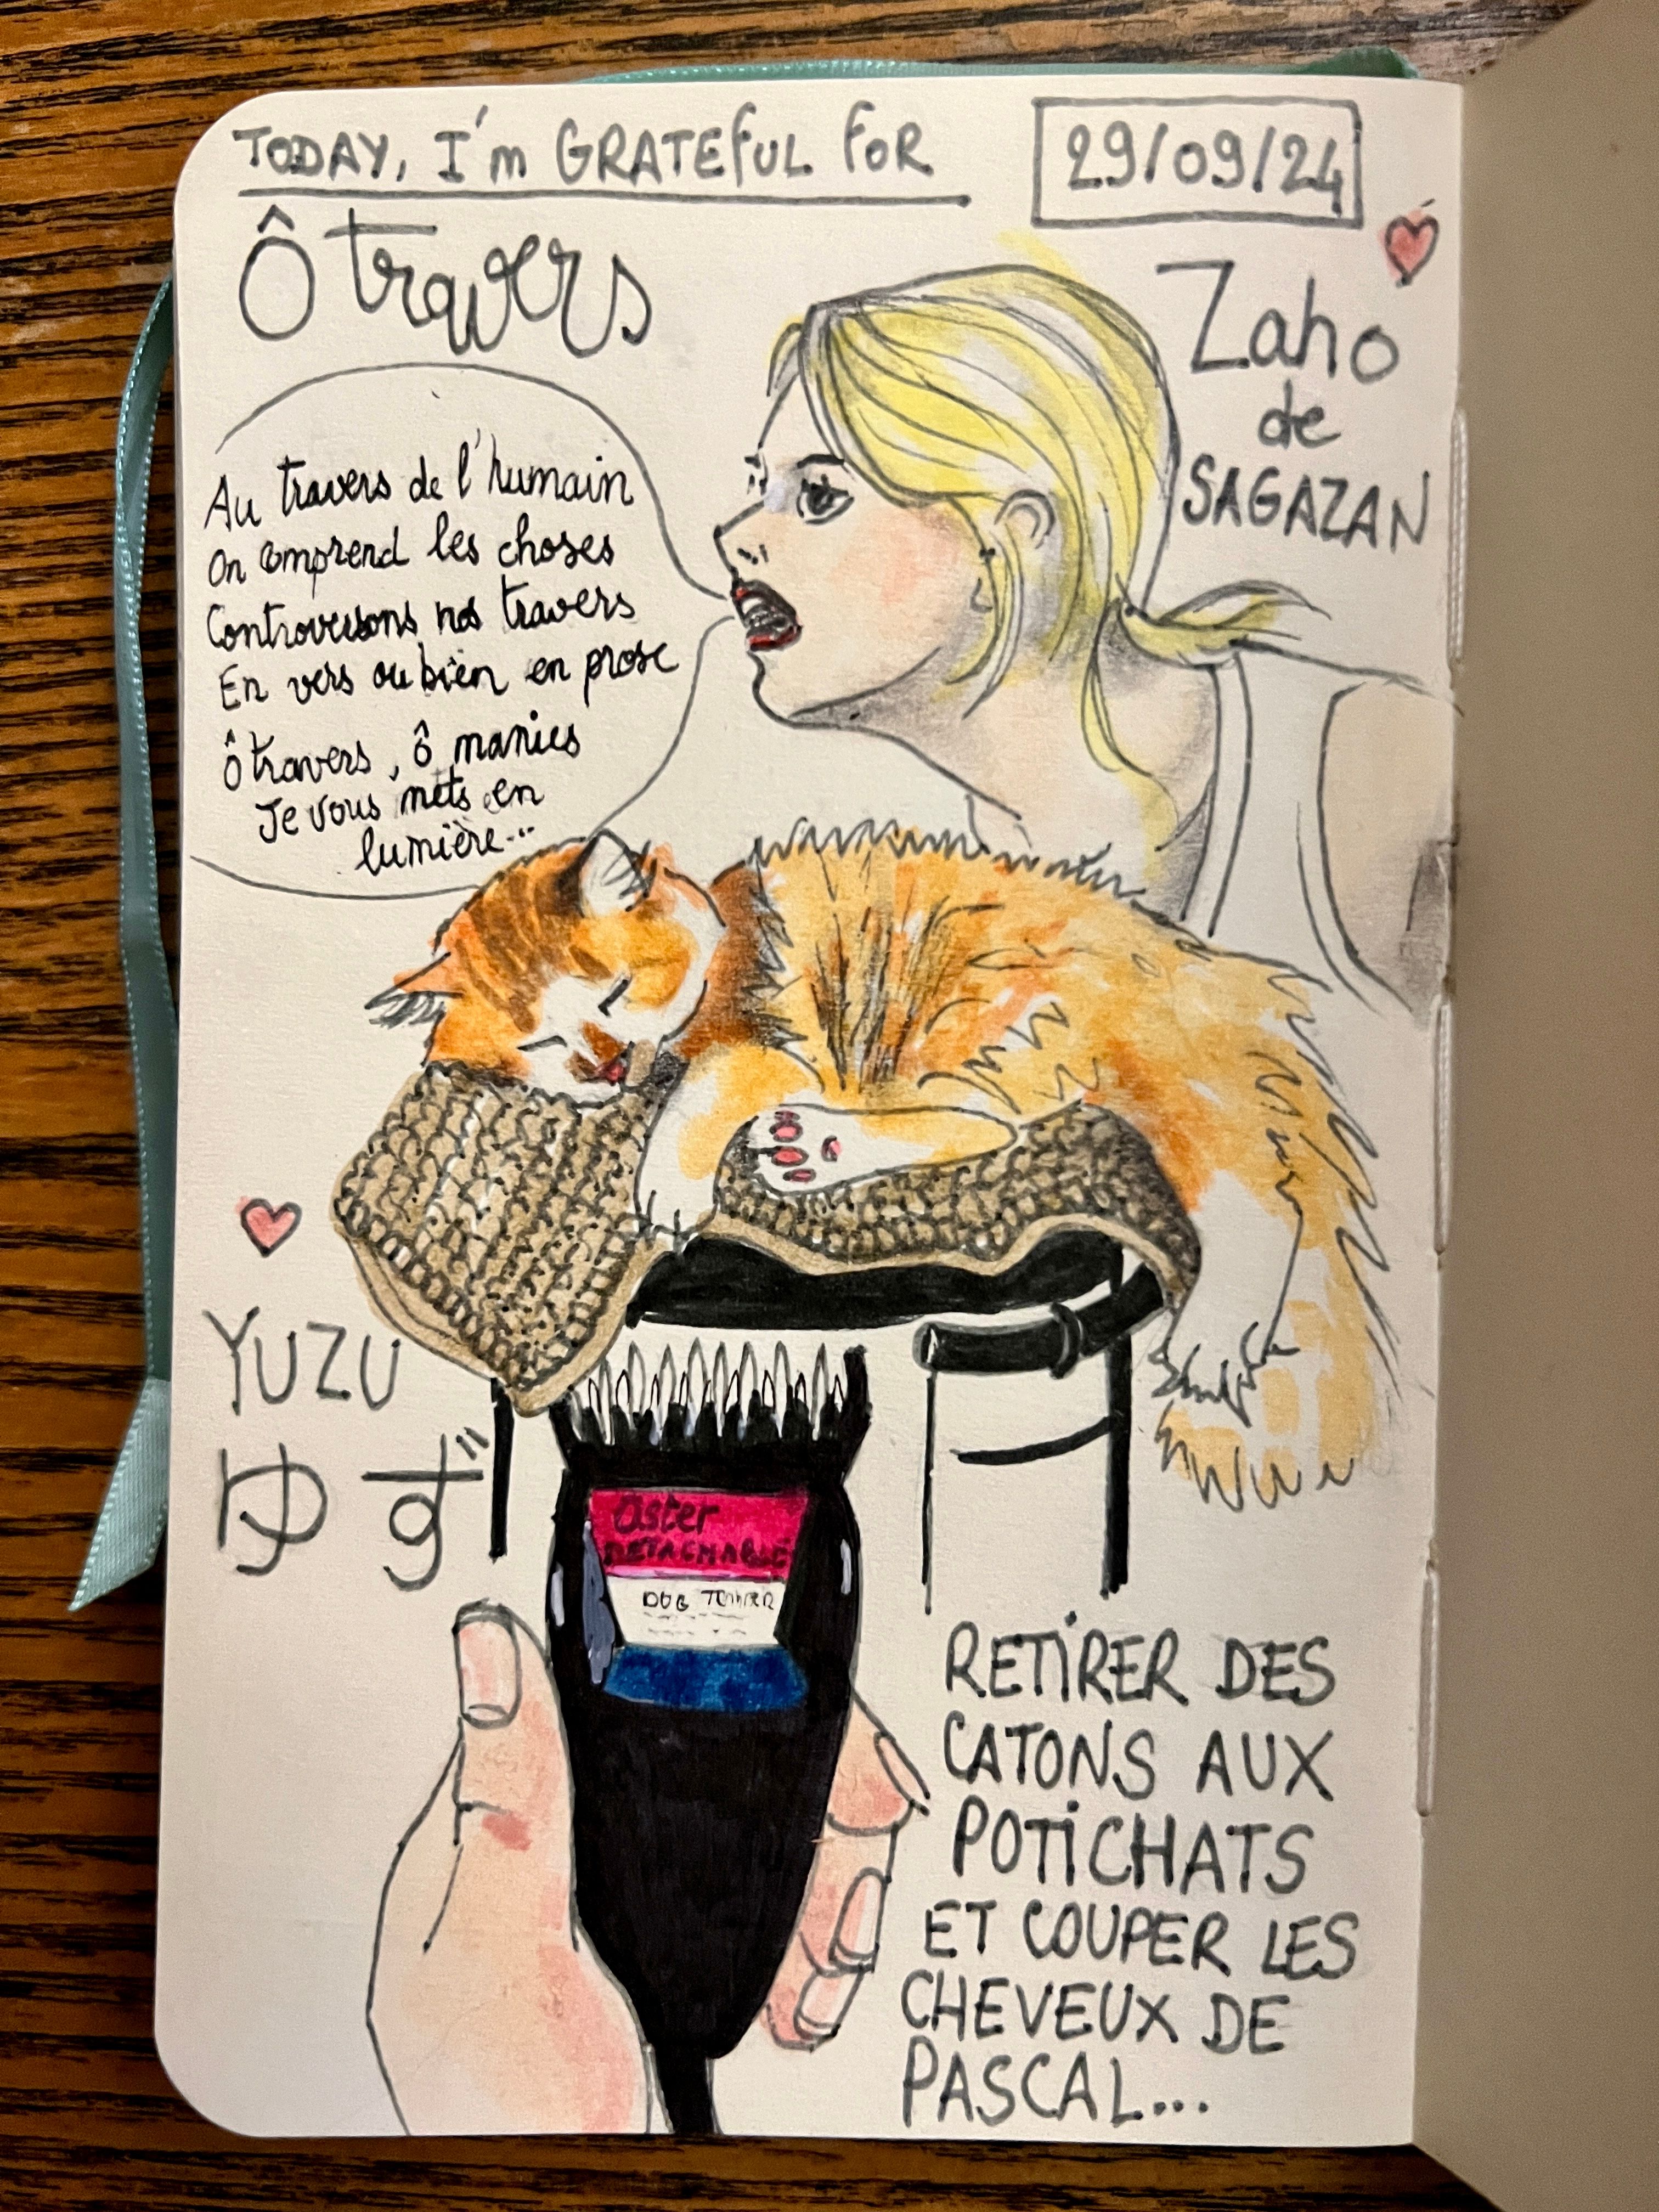 TODAY, I'm GRATEFUL FOR
29/09/24
Ô travers
Zaho
de
SAGAZAN
Au travers de l'humain
On comprend les choses
Controversons nos travers
En vers ou bien en prose
ô travers, ô manies
Je vous mets en
lumière...
YUZU
ゆず
Oster
DETACHABLE
DOG
RETIRER DES
CATONS AUX
POTICHATS
ET COUPER LES
CHEVEUX DE
PASCAL...